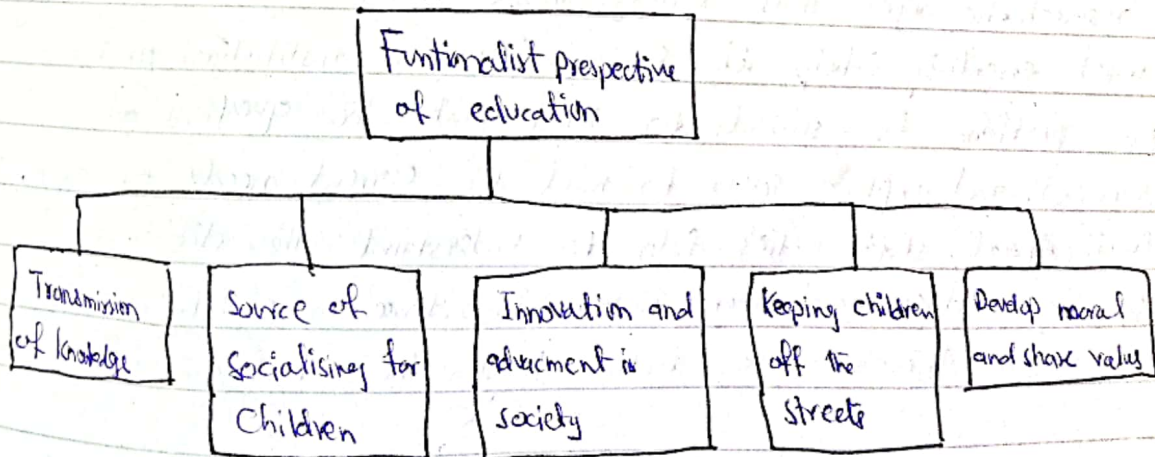 Funtionalist prespective
of education
Transmission
of knowledge
Source of
Socialising for
Children
Innovation and
advacment in
society
Keeping children
off the
streets
Develop moral
and share values